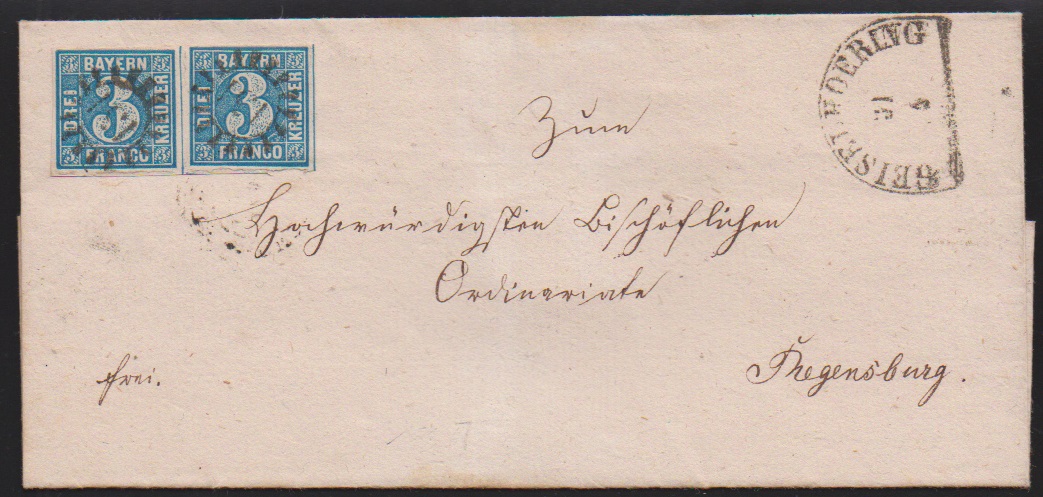 BAYERN
DREI 3 KREUZER
FRANCO
BAYERN
DREI 3 KREUZER
FRANCO
GEISELHOERING
Zum
Hochwürdigsten Bischöflichen
Ordinariate
frei.
Regensburg.